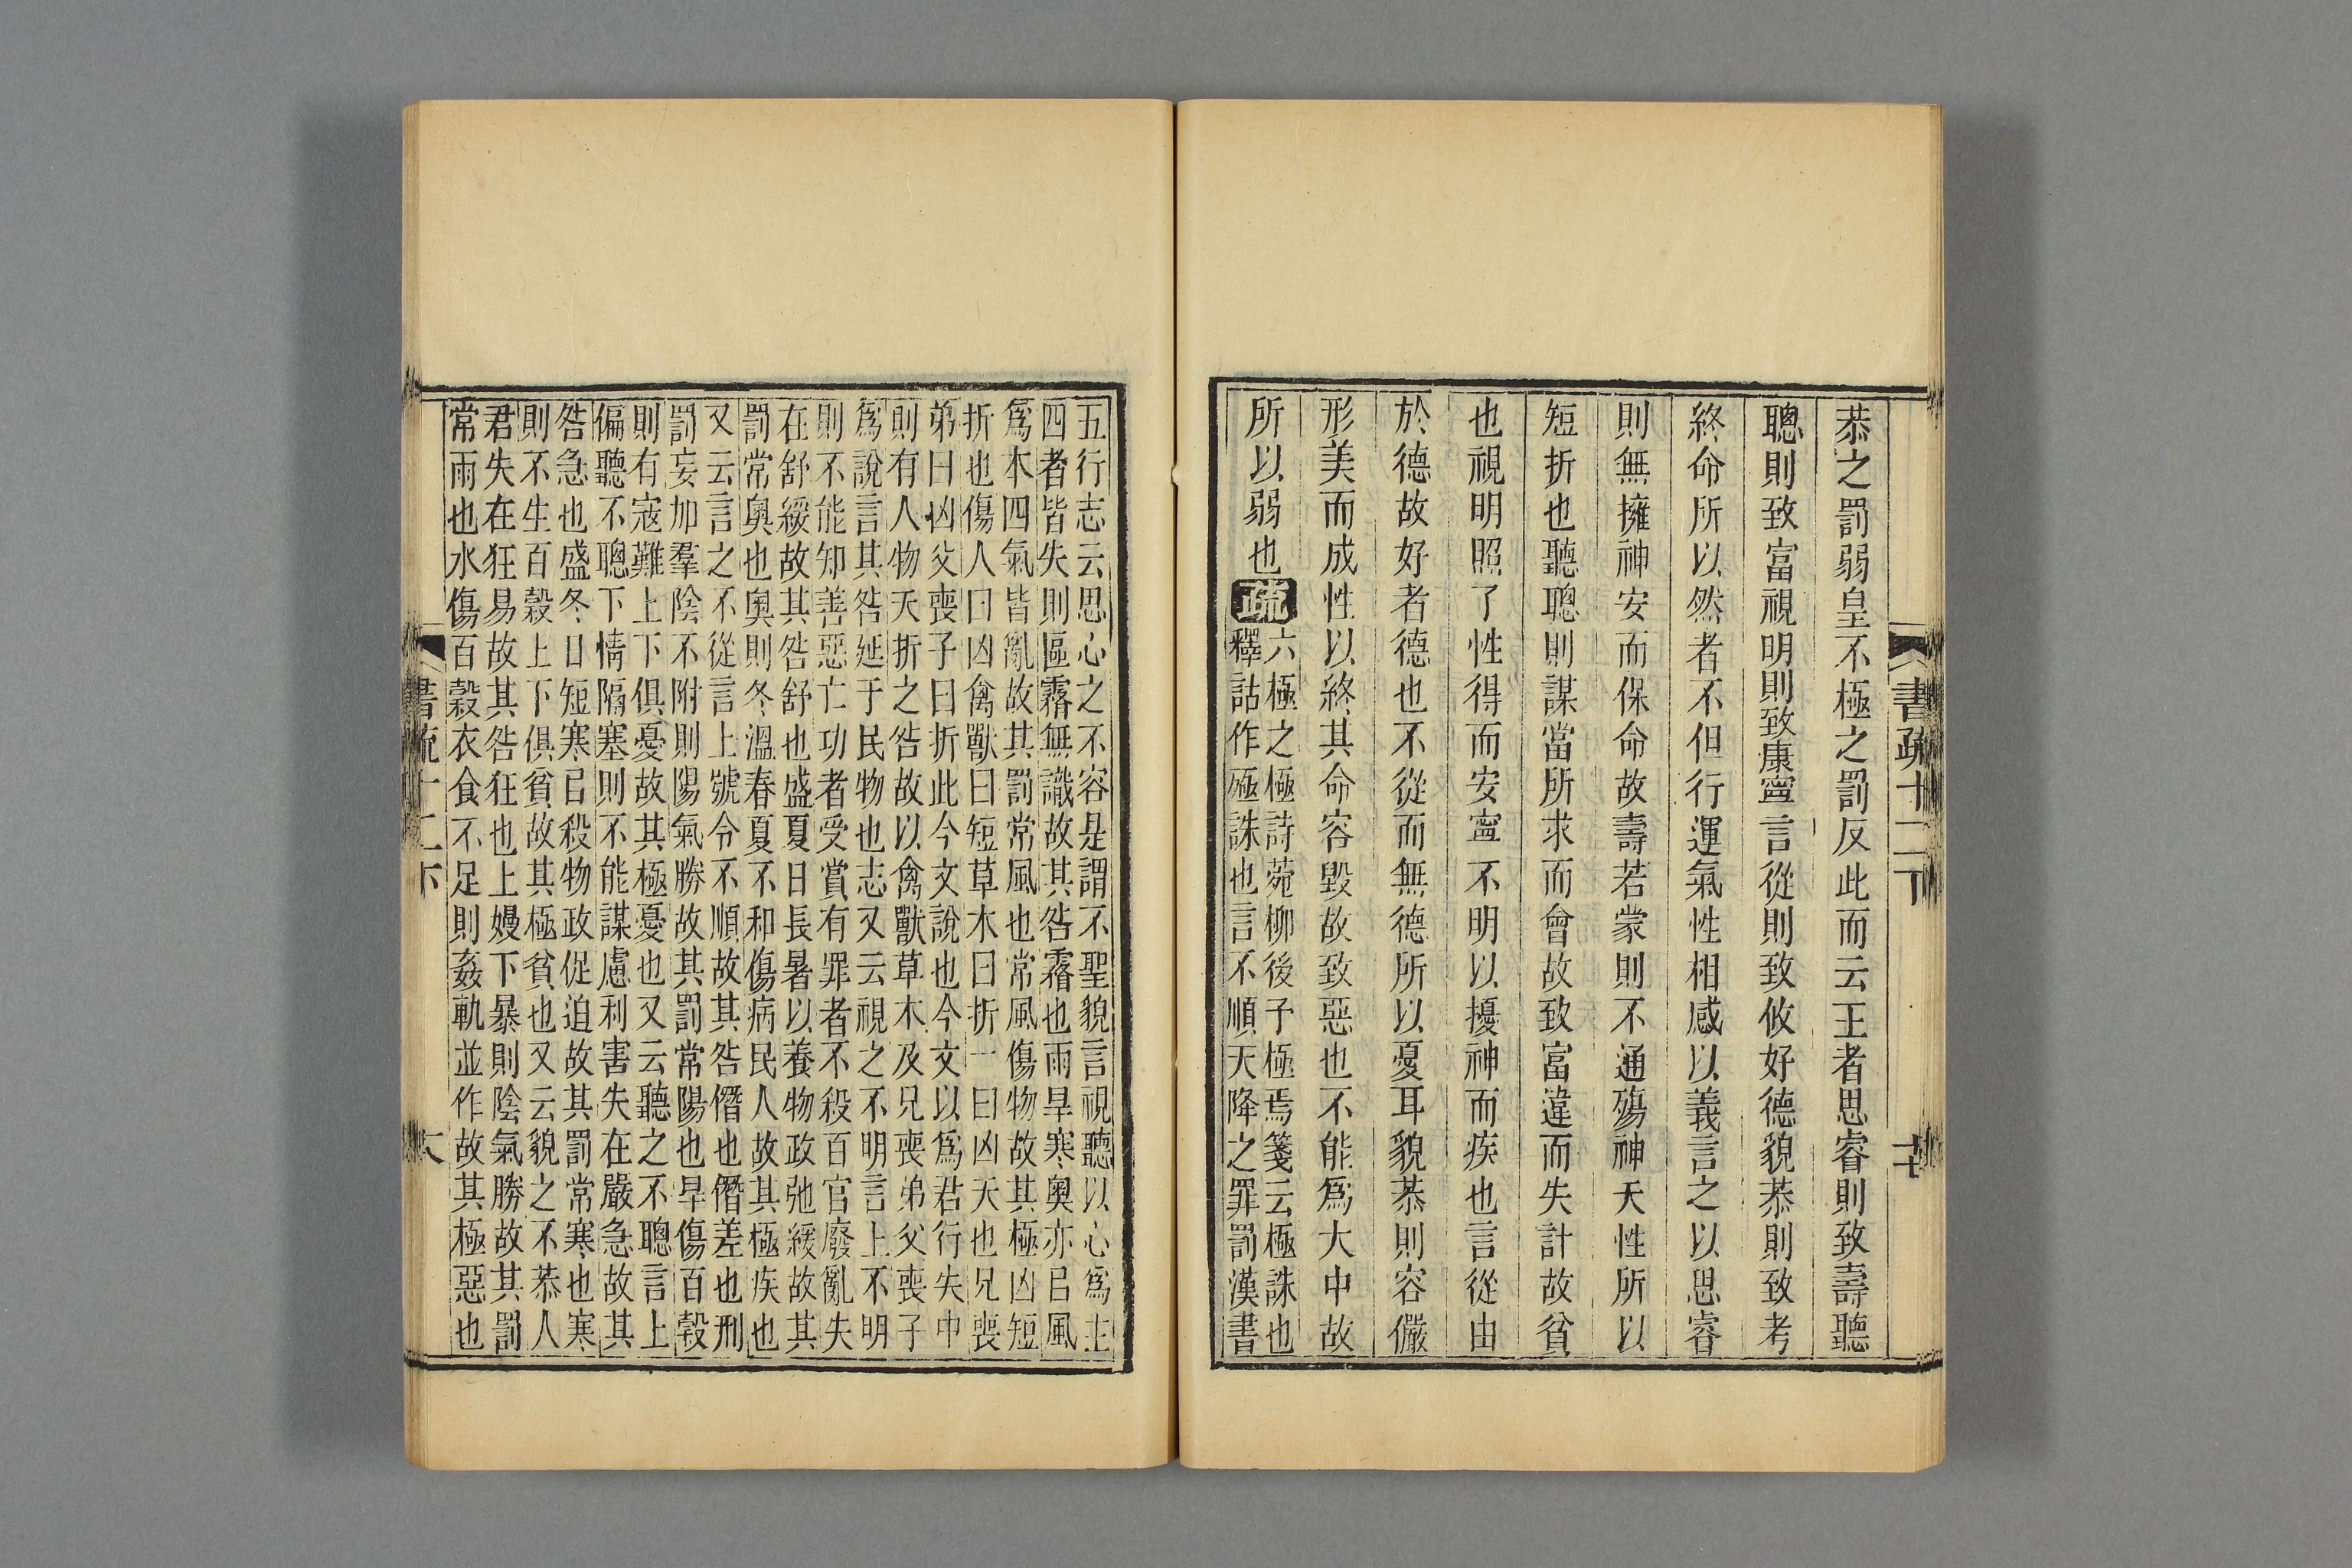 書疏十二下
十七
恭之罰弱皇不極之罰反此而云王者思睿則致壽聽
聰則致富視明則致康寧言從則致攸好德貌恭則致考
終命所以然者不但行運氣性相感以義言之以思睿
則無擁神安而保命故壽若蒙則不通殤神夭性所以
短折也聽聰則謀當所求而會故致富違而失計故貧
也視明照了性得而安寧不明以擾神而疾也言從由
於德故好者德也不從而無德所以憂耳貌恭則容儼
形美而成性以終其命容毀故致惡也不能爲大中故
所以弱也疏六極之極詩菀柳後予極焉箋云極誅也
釋詁作殛誅也言不順天降之罪罰漢書
五行志云思心之不容是謂不聖貌言視聽以心爲主
四者皆失則區霿無識故其咎霿也雨旱寒奧亦㠯風
爲本四氣皆亂故其罰常風也常風傷物故其極凶短
折也傷人曰凶禽獸曰短草木曰折一曰凶夭也兄喪
弟曰凶父喪子曰折此今文說也今文以爲君行失中
則有人物夭折之咎故以禽獸草木及兄喪弟父喪子
爲說言其咎延于民物也志又云視之不明言上不明
則不能知善惡亡功者受賞有罪者不殺百官廢亂失
在舒緩故其咎舒也盛夏日長暑以養物政弛緩故其
罰常奧也奧則冬溫春夏不和傷病民人故其極疾也
又云言之不從言上號令不順故其咎僭也僭差也刑
罰妄加羣陰不附則陽氣勝故其罰常陽也旱傷百穀
則有寇難上下俱憂故其極憂也又云聽之不聰言上
偏聽不聰下情隔塞則不能謀慮利害失在嚴急故其
咎急也盛冬日短寒㠯殺物政促迫故其罰常寒也寒
則不生百穀上下俱貧故其極貧也又云貌之不恭人
君失在狂易故其咎狂也上嫚下暴則陰氣勝故其罰
常雨也水傷百穀衣食不足則姦軌並作故其極惡也
書疏十二下